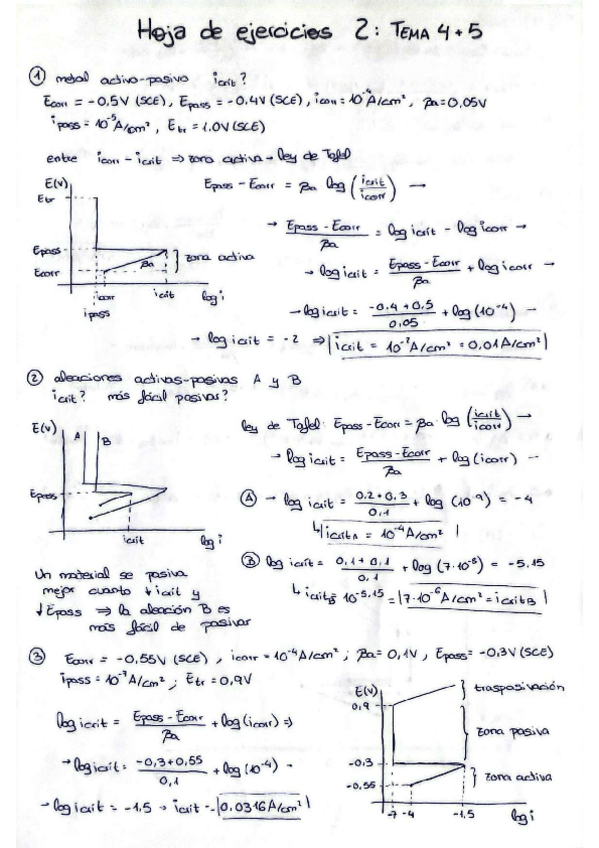 Hoja de ejercicios 2: TEMA 4+5
① metal activo-pasivo icrit?
Ecorr = -0,5V (SCE), Epass = -0,4V (SCE), icorr = 10⁻⁴A/cm², βa = 0,05V
ipass = 10⁻⁵A/cm², Etr = 1.0V (SCE)
entre icorr - icrit ⇒ zona activa → ley de Tafel
Epass - Ecorr = βa log (icrit/icorr) →
→ (Epass - Ecorr)/βa = log icrit - log icorr →
→ log icrit = (Epass - Ecorr)/βa + log icorr →
→ log icrit = (-0.4 + 0.5)/0,05 + log (10⁻⁴) →
→ log icrit = -2 ⇒ icrit = 10⁻²A/cm² = 0,01A/cm²
E(V)
Etr
Epass
Ecorr
βa
zona activa
icorr
icrit
log i
ipass
② aleaciones activas-pasivas A y B
icrit? más fácil pasivar?
ley de Tafel: Epass - Ecorr = βa · log (icrit/icorr) →
→ log icrit = (Epass - Ecorr)/βa + log (icorr) →
E(V)
A
B
Epass
icrit
log i
Ⓐ → log icrit = (0.2 + 0.3)/0,1 + log (10⁻⁹) = -4
↳ icrit A = 10⁻⁴A/cm²
Ⓑ log icrit = (0,1 + 0,1)/0,1 + log (7·10⁻⁸) = -5.15
↳ icrit B = 10⁻⁵·¹⁵ = 7·10⁻⁶A/cm² = icrit B
Un material se pasiva
mejor cuanto ↓ icrit y
↓ Epass ⇒ la aleación B es
más fácil de pasivar
③ Ecorr = -0,55V (SCE), icorr = 10⁻⁴A/cm²; βa = 0,1V, Epass = -0,3V (SCE)
ipass = 10⁻⁷A/cm²; Etr = 0,9V
log icrit = (Epass - Ecorr)/βa + log (icorr) ⇒
→ log icrit = (-0,3 + 0,55)/0,1 + log (10⁻⁴) →
→ log icrit = -1,5 → icrit = 0,0316A/cm²
E(V)
0,9
-0,3
-0,55
traspasivación
zona pasiva
zona activa
-7 -4 -1,5
log i